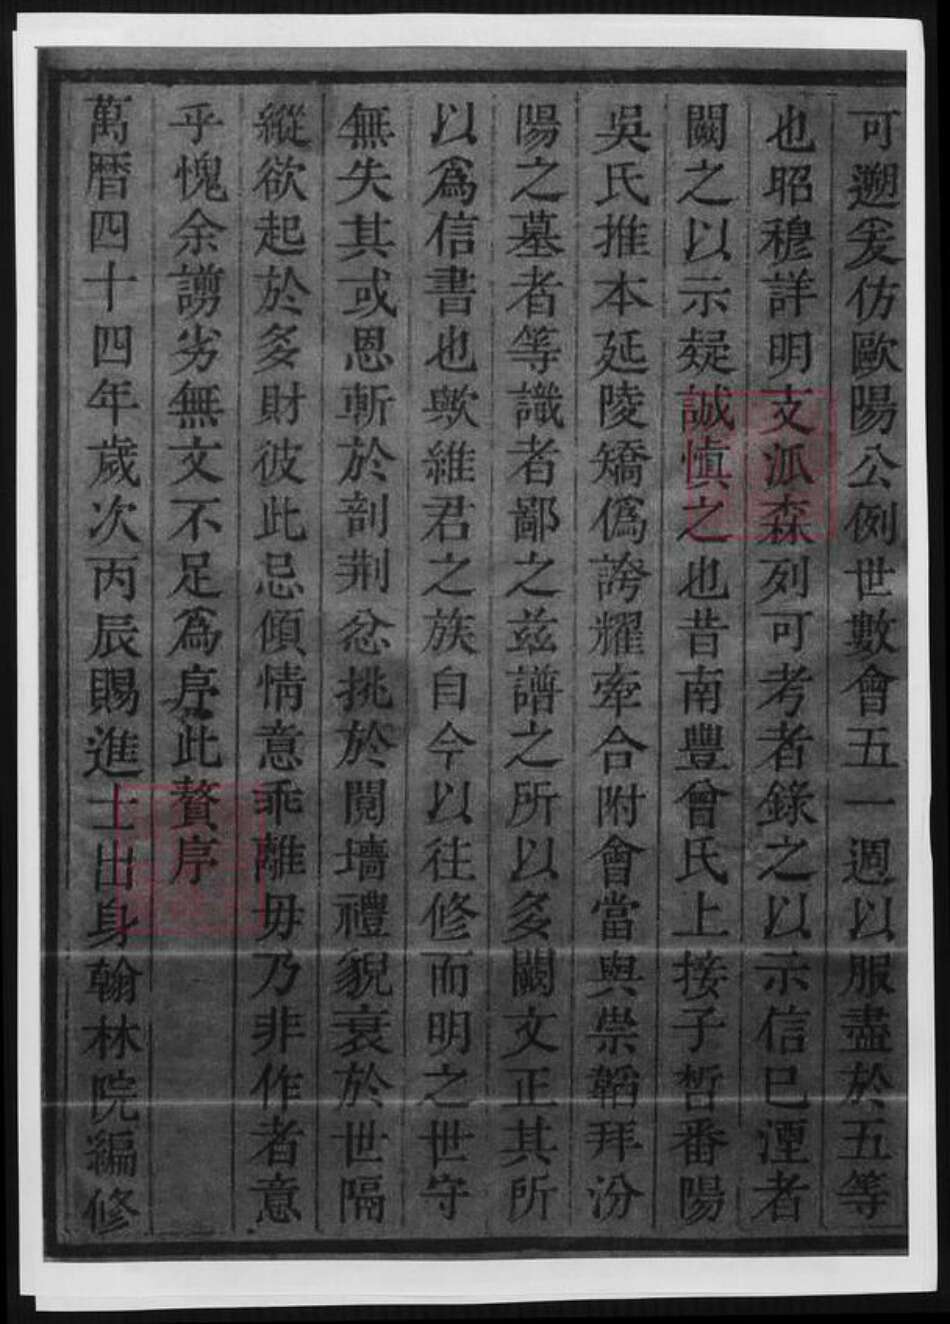 可遡爰仿歐陽公例世數會五一週以服盡於五等
也昭穆詳明支派森列可考者錄之以示信已湮者
闕之以示疑誠慎之也昔南豐曾氏上接子晳番陽
吳氏推本延陵矯偽誇耀牽合附會當與崇韜拜汾
陽之墓者等識者鄙之茲譜之所以多闕文正其所
以為信書也歟維君之族自今以往修而明之世守
無失其或恩斬於剖荆忿挑於鬩墻禮貌衰於世隔
縱欲起於多財彼此忌傾情意乖離毋乃非作者意
乎愧余謭劣無文不足為序此贅序
萬曆四十四年歲次丙辰賜進士出身翰林院編修